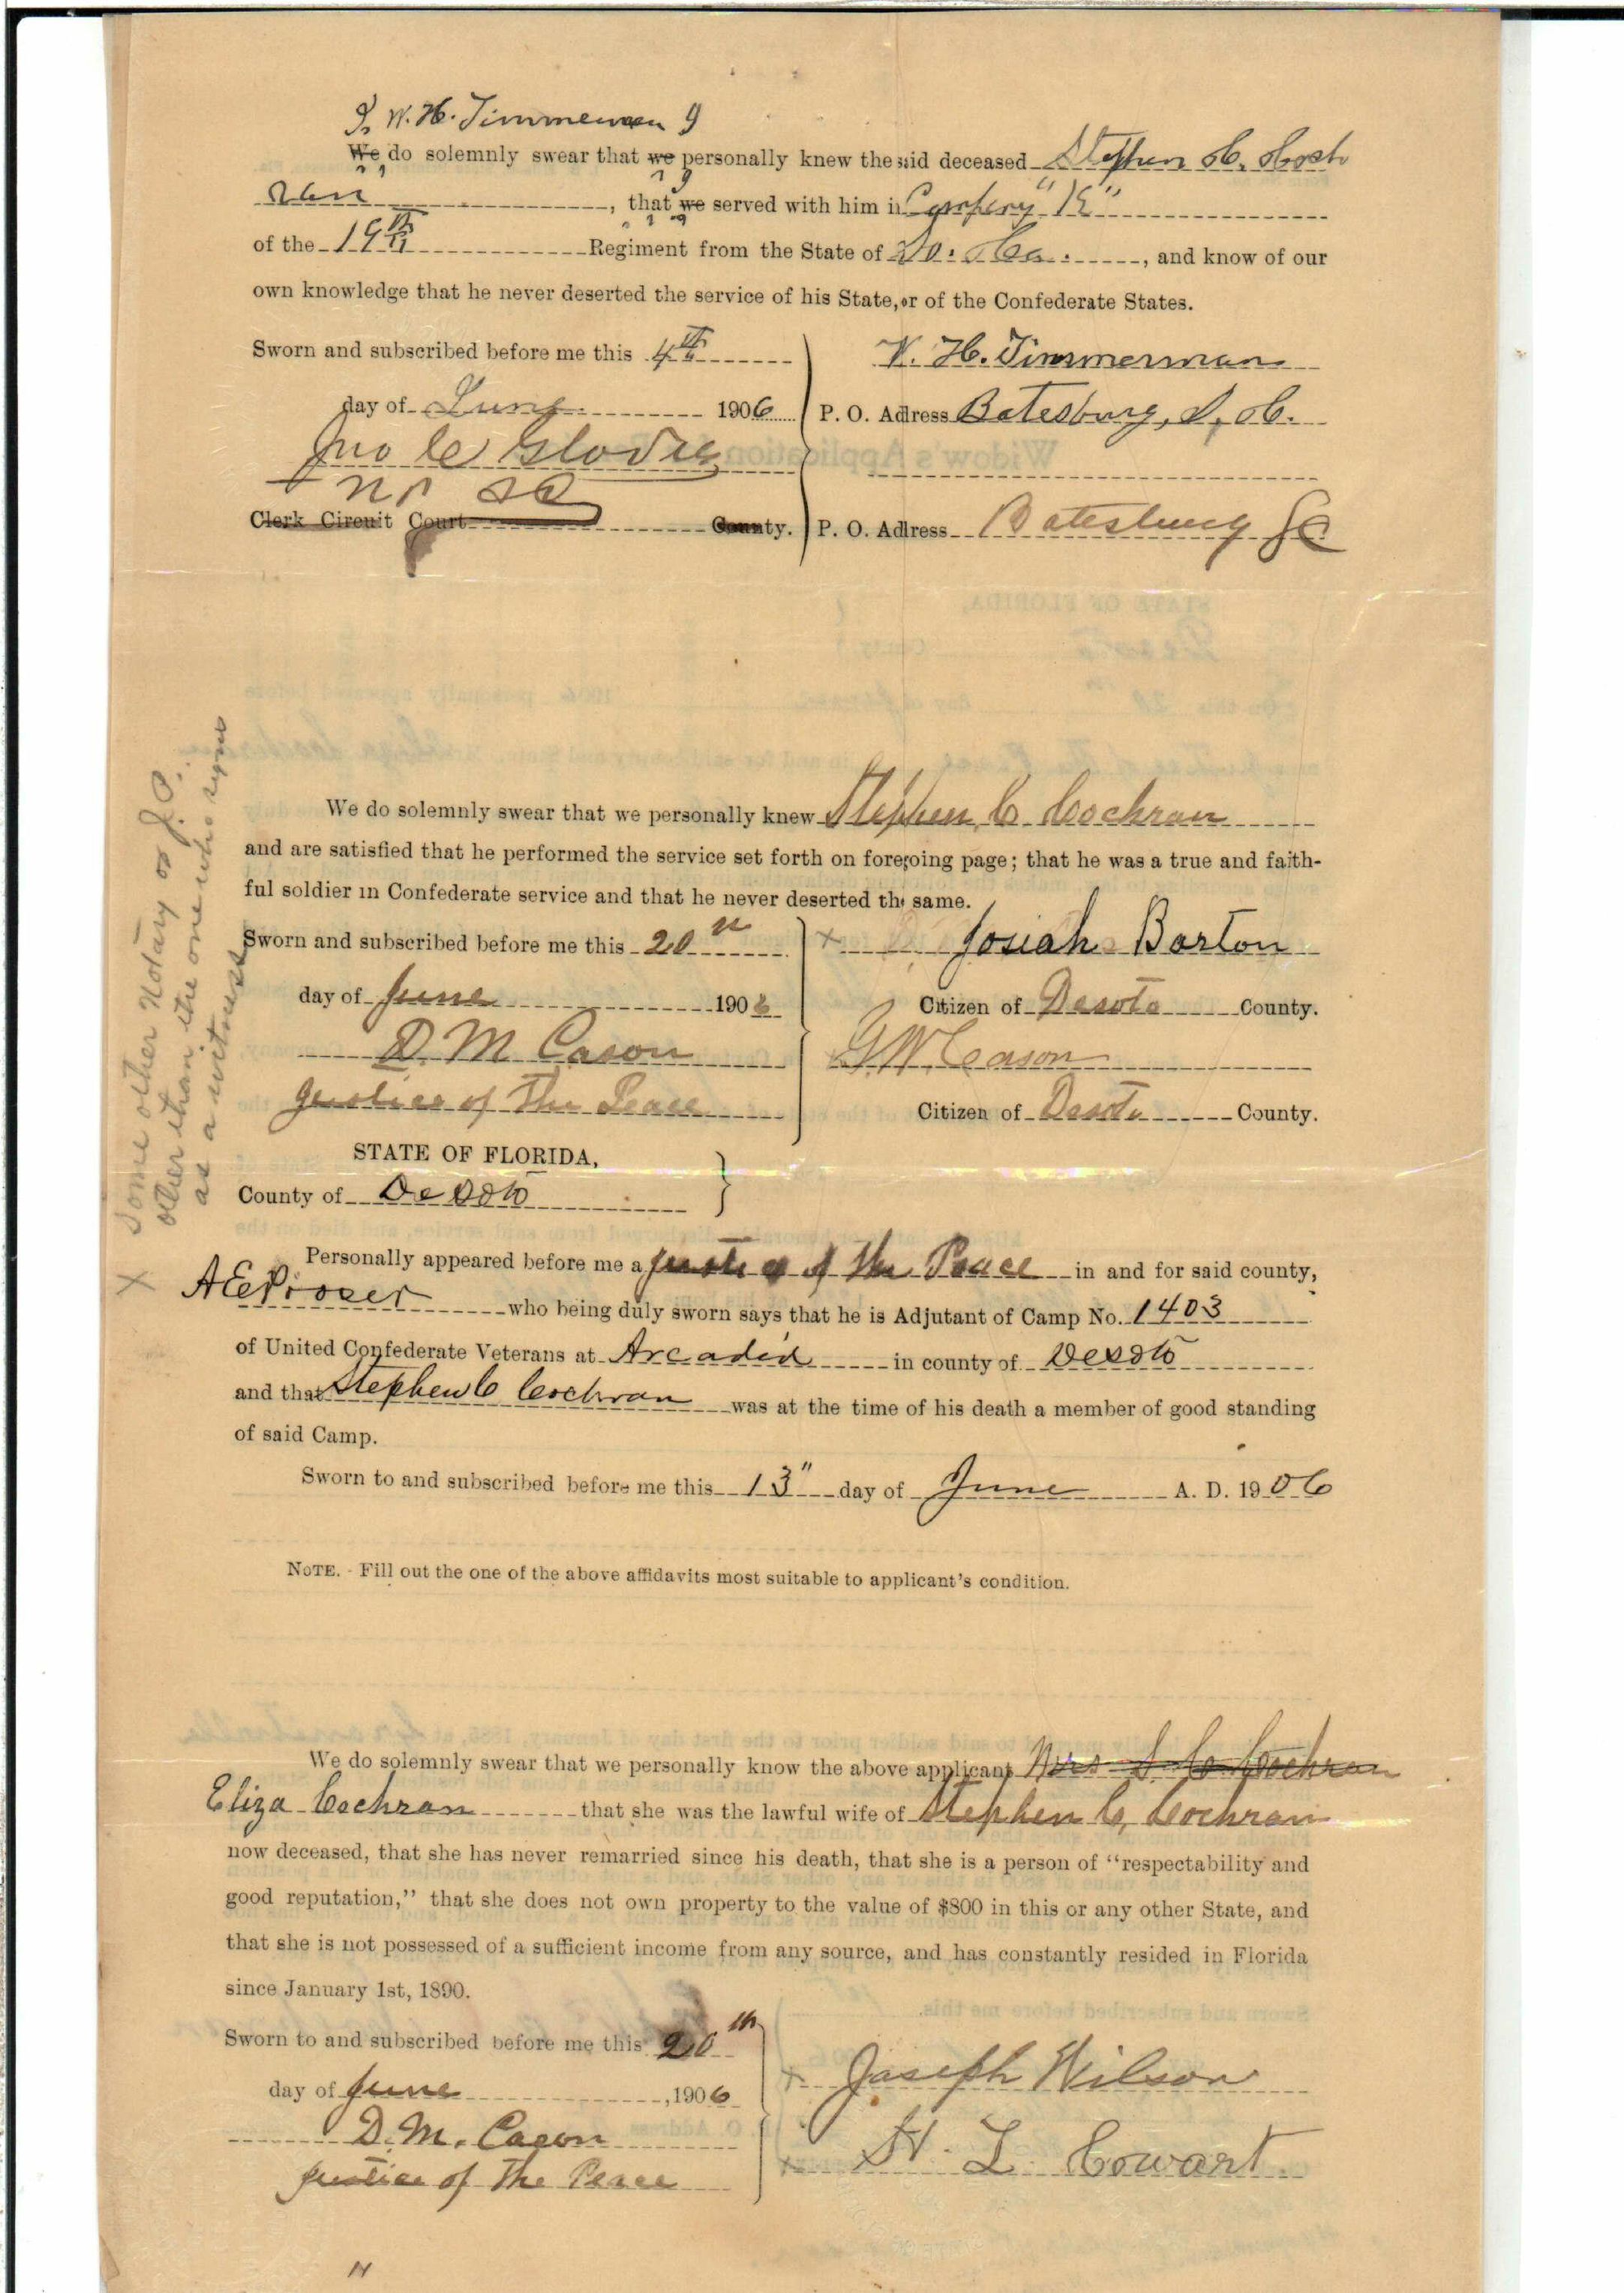 I, W. H. Timmerman I
We do solemnly swear that we personally knew the said deceased Stephen C. Coch
ran, that we served with him in Company "K"
of the 19th Regiment from the State of So. Ca., and know of our
own knowledge that he never deserted the service of his State, or of the Confederate States.
Sworn and subscribed before me this 4th
day of June 1906
W. H. Timmerman
P. O. Address Batesburg, S. C.
Jno C
N P SC
Clerk Circuit Court County.
P. O. Address Batesburg SC
We do solemnly swear that we personally knew Stephen C Cochran
and are satisfied that he performed the service set forth on foregoing page; that he was a true and faith-
ful soldier in Confederate service and that he never deserted the same.
Sworn and subscribed before me this 20th
day of June 1906
D. M Cason
Justice of The Peace
x Josiah Barton
Citizen of Desoto County.
G. W. Cason
Citizen of Desoto County.
x Some other Notary or J.P.
other than the one who signs
as a witness
STATE OF FLORIDA,
County of DeSoto
Personally appeared before me a Justice of the Peace in and for said county,
A E who being duly sworn says that he is Adjutant of Camp No. 1403
of United Confederate Veterans at Arcadia in county of DeSoto
and that Stephen C Cochran was at the time of his death a member of good standing
of said Camp.
Sworn to and subscribed before me this 13" day of June A. D. 1906
NOTE. - Fill out the one of the above affidavits most suitable to applicant's condition.
We do solemnly swear that we personally know the above applicant Mrs S. C. Cochran
Eliza Cochran that she was the lawful wife of Stephen C, Cochran
now deceased, that she has never remarried since his death, that she is a person of "respectability and
good reputation," that she does not own property to the value of $800 in this or any other State, and
that she is not possessed of a sufficient income from any source, and has constantly resided in Florida
since January 1st, 1890.
Sworn to and subscribed before me this 20th
day of June, 1906
D. M. Cason
Justice of The Peace
x Joseph Wilson
x H. L. Cowart